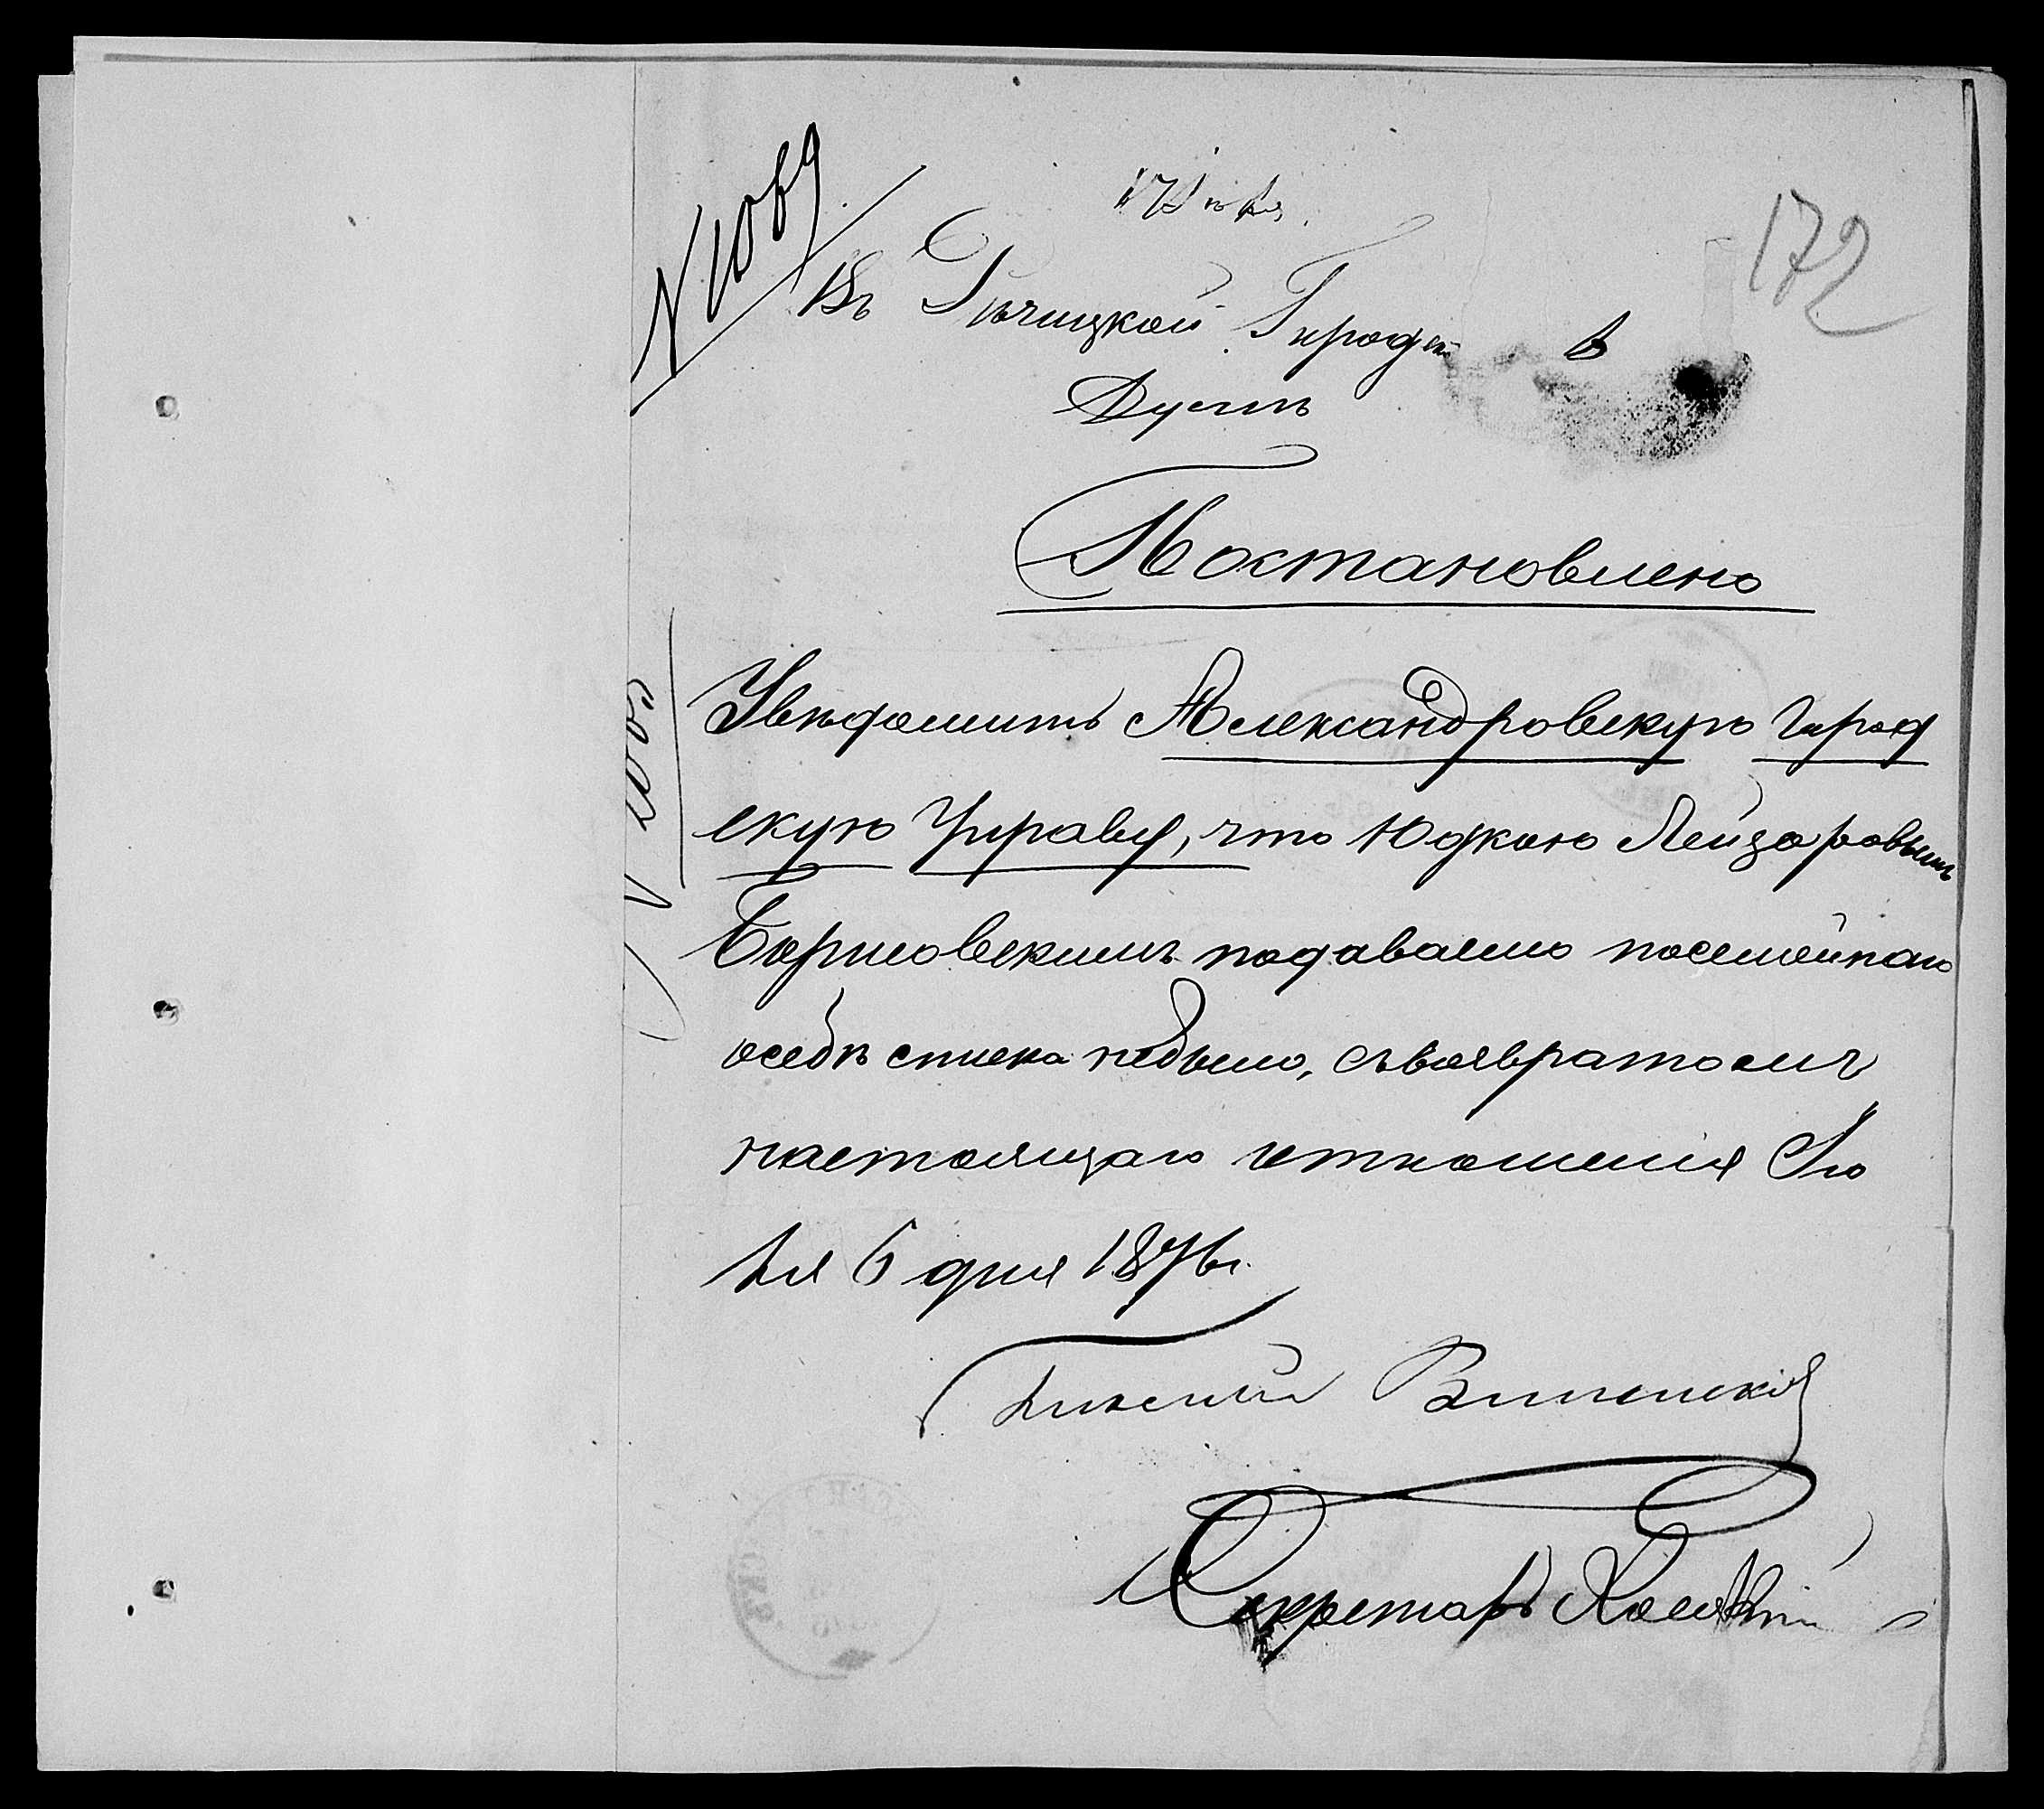 N 1069
172
Въ Рѣчицкой Городской
Думѣ
Постановлено
Увѣдомить Александровскую Город
скую Управу, что Юдкою Лейзеровымъ
Борисовскимъ подаваемо посемейнаго
осебѣ списка небыло, съвозвратомъ
настоящаго отношенія Iю
ля 6 дня 1876 г.
Секретарь